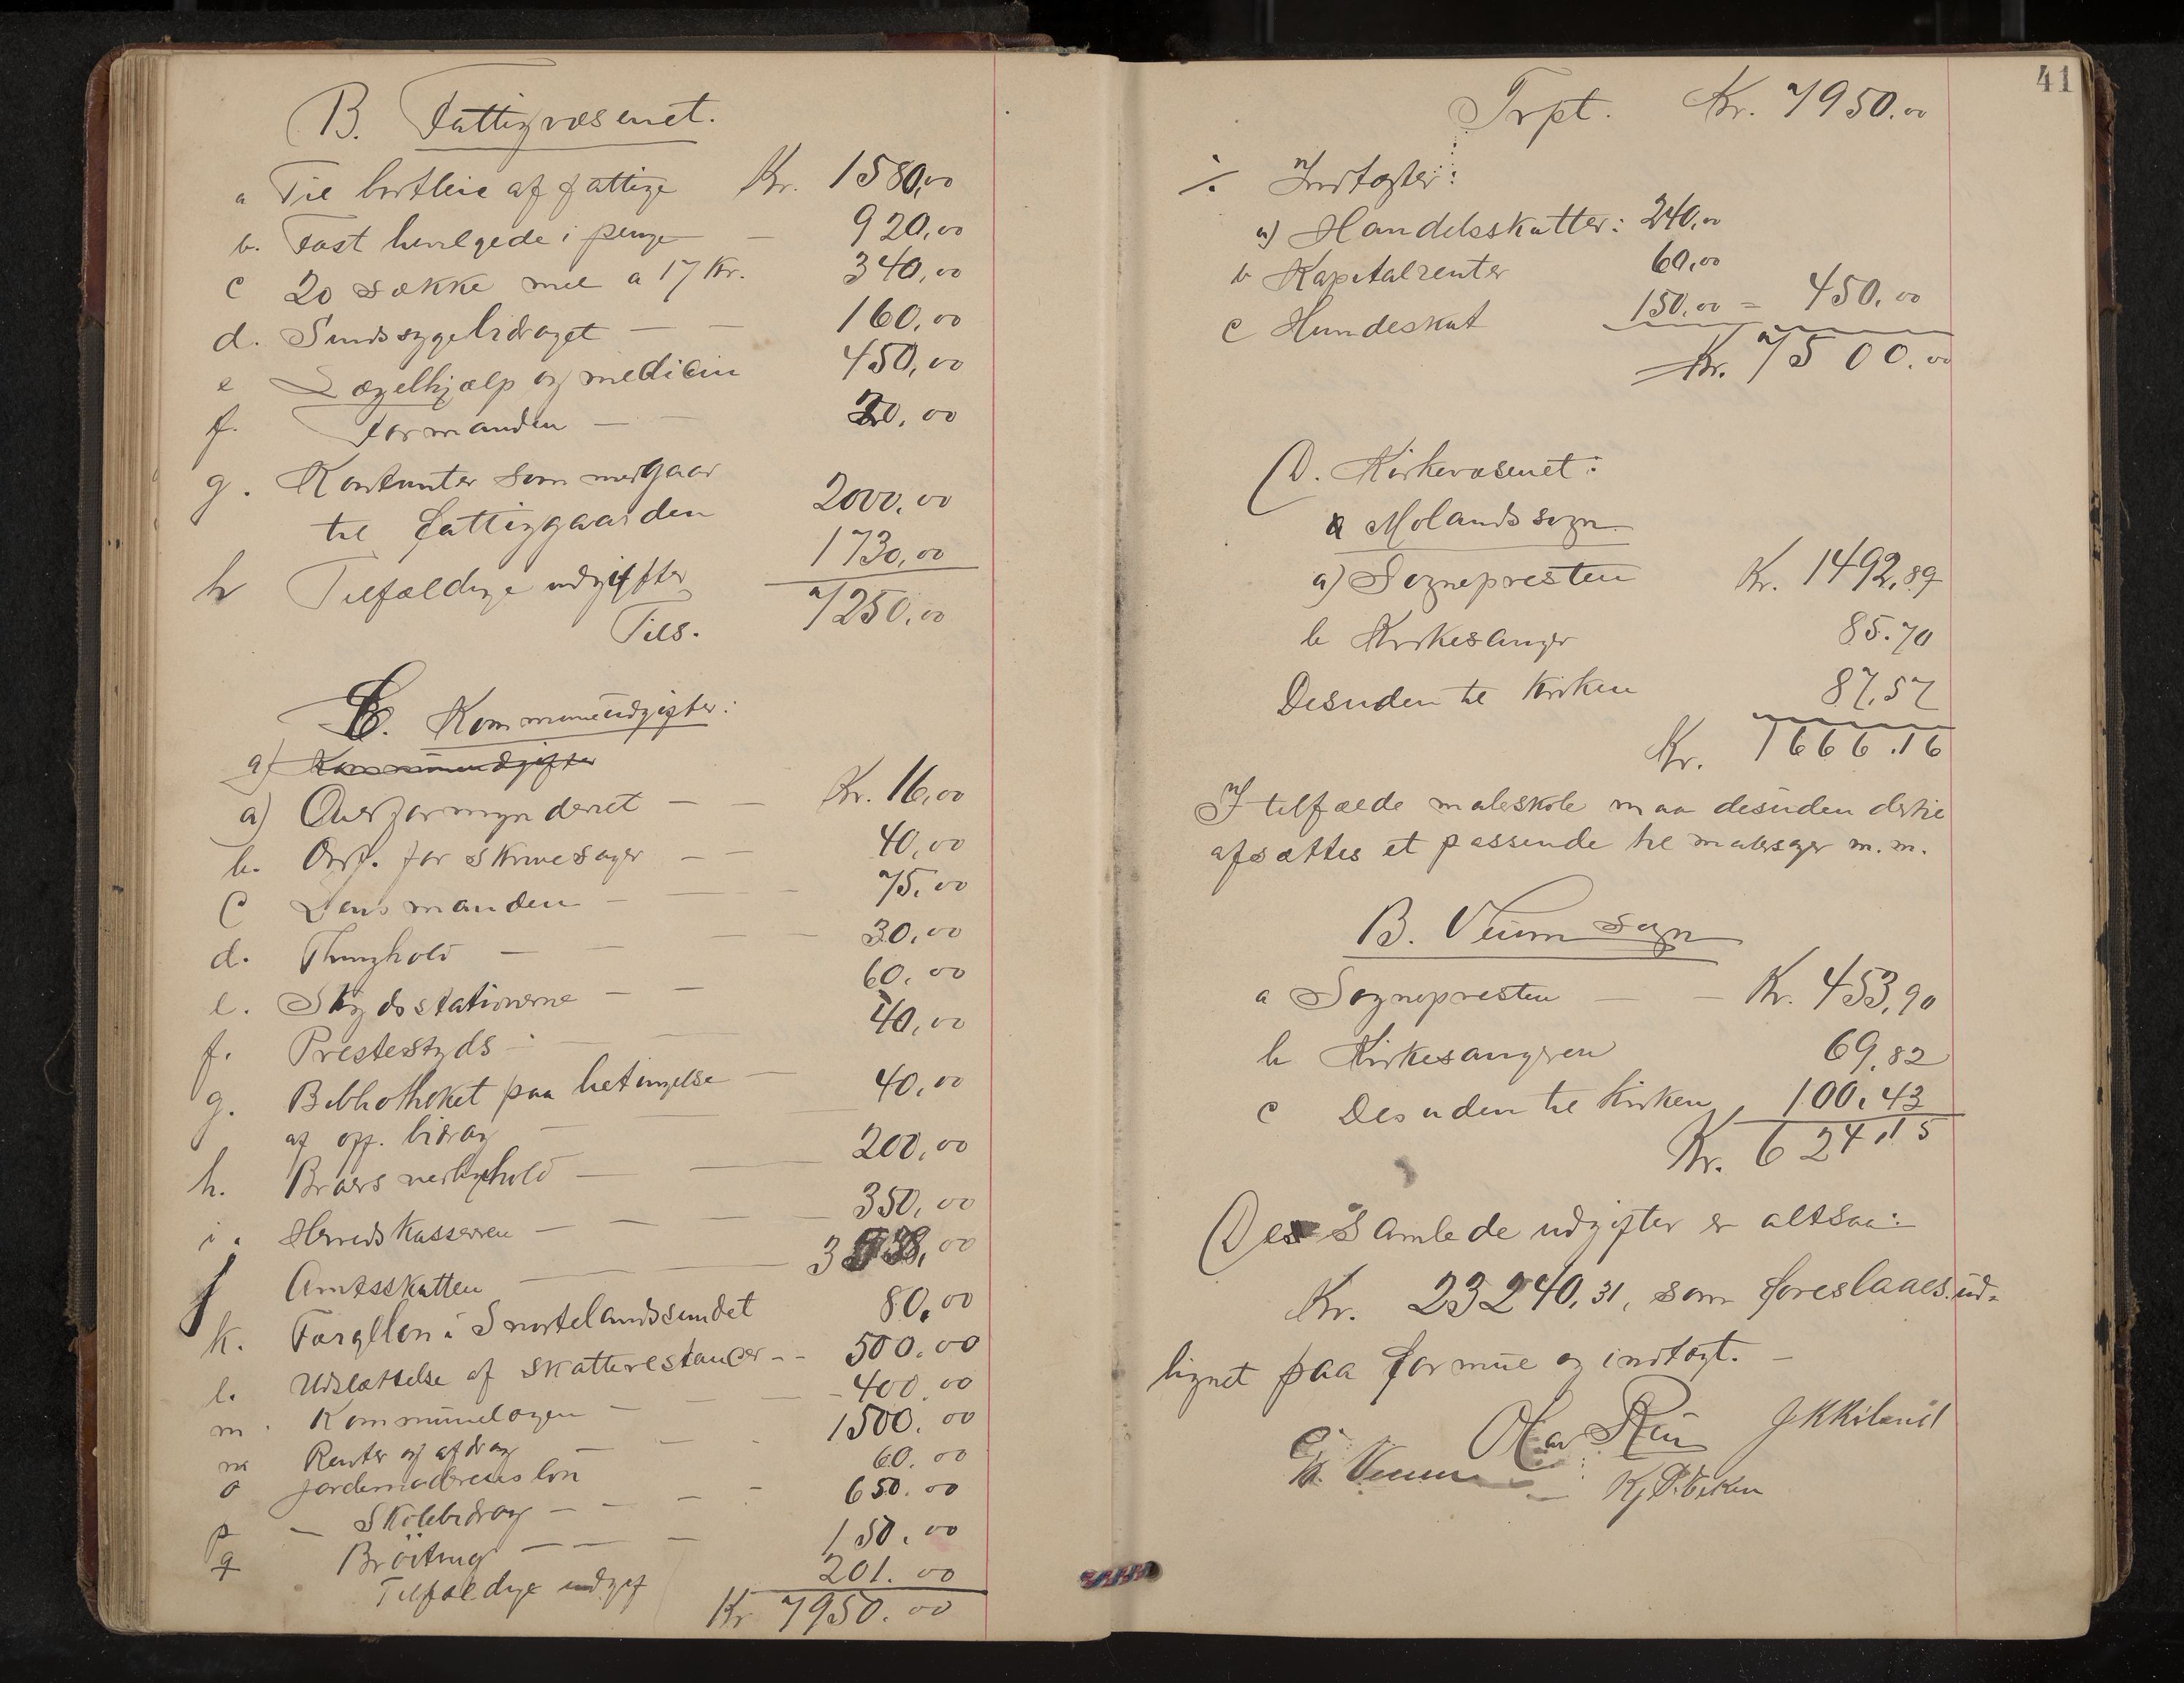 B. Fattigvæsenet.
a Til bortleie af fattige Kr. 1580,00
b. Fast hevilgede i penge — 920,00
c 20 sække mel a 17 Kr. 340,00
d. Sindssygebidraget — — 160,00
e Lægehjælp og medicin 450,00
f. Formanden — — 00
g. Kontanter som medgaar
til fattiggaarden 2000.00
h Tilfældige udgifter 1730,00
Tils. 7250.00
C. Kommuneudgifter:
a) Kommuneudgifter
a) Overformynderiet — — Kr. 16,00
b. Ordf. for skrivesager — — 40,00
C Lensmanden — — 75.00
d. Thinghold — — — 30.00
e. Skydsstationerne — — 60.00
f. Presteskyds — — 40,00
g. Bibliotheket paa betingelse —
af opp. bidrag — 40,00
h. Broers vedligehold — — 200,00
i. Herredskasseren — — — 350,00
j Amtsskatten — 00
k. Færgelløn i Snartelandssundet 80,00
l. Udsættelse af skatterestancer -- 500.00
m. Kommunelagen — — - 400.00
n Renter og afdrag — — 1500.00
o Jordemoderens løn 60.00
p — Skolebidrag — — — - 650.00
q Brøitning — — — 150.00
Tilfældige udgif 201.00
Kr 7950.00
41
Trpt. Kr. 7950.00
÷ Indtægter:
a) Handelsskatter: 240,00
b Kapitalrenter 60,00
c Hundeskat 150,00 = 450.00
Kr. 7500.00
D. Kirkevæsenet:
a Molands sogn
a) Sognepresten Kr. 1492,89
b Kirkesanger 85.70
Desuden til Kirken 87,57
Kr. 1666.16
I tilfælde maleskole maa desuden dertil
afsættes et passende til m.m.
B. Veum Sogn
a Sognepresten — — Kr. 453,90
b Kirkesangeren 69,82
c Desuden til Kirken, 100,43
Kr. 624,15
De samlede udgifter er altsaa:
Kr. 23240,31, som foreslaaes ud-
lignet paa formue og indtægt. —
Olav Rui J K Kiland
Veum
Kj. P. Viken